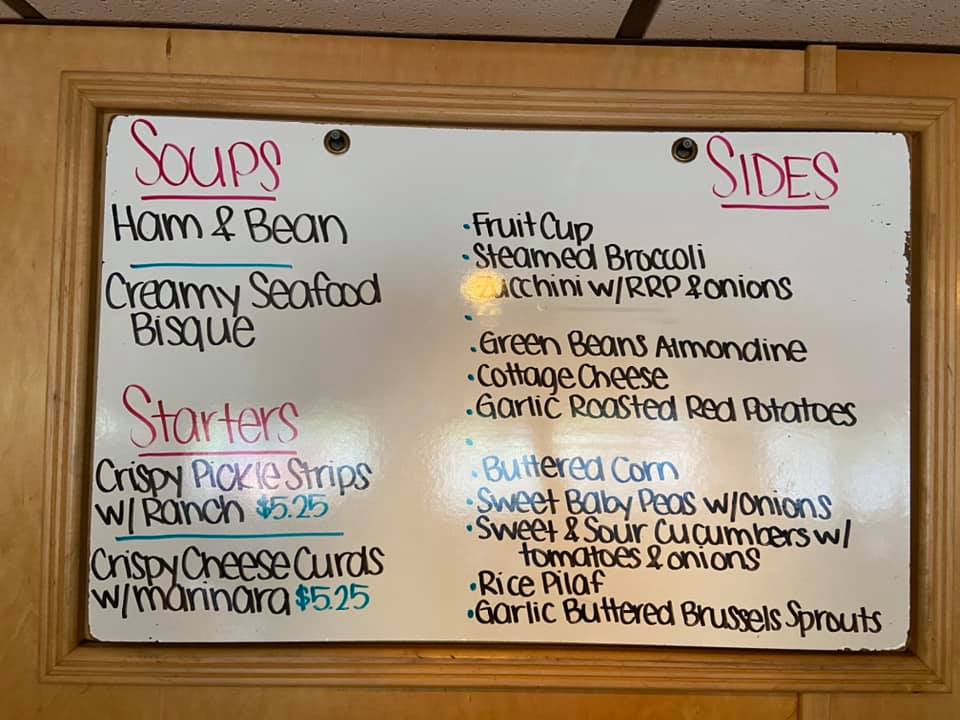 Soups
Ham & Bean
Creamy Seafood
Bisque
Starters
Crispy Pickle Strips
w/Ranch $5.25
Crispy Cheese Curds
w/marinara $5.25
SIDES
• Fruit Cup
• Steamed Broccoli
Zucchini w/RRP & onions
•
• Green Beans Almondine
• Cottage Cheese
• Garlic Roasted Red Potatoes
•
• Buttered Corn
• Sweet Baby Peas w/onions
• Sweet & Sour Cucumbers w/
tomatoes & onions
• Rice Pilaf
• Garlic Buttered Brussels Sprouts